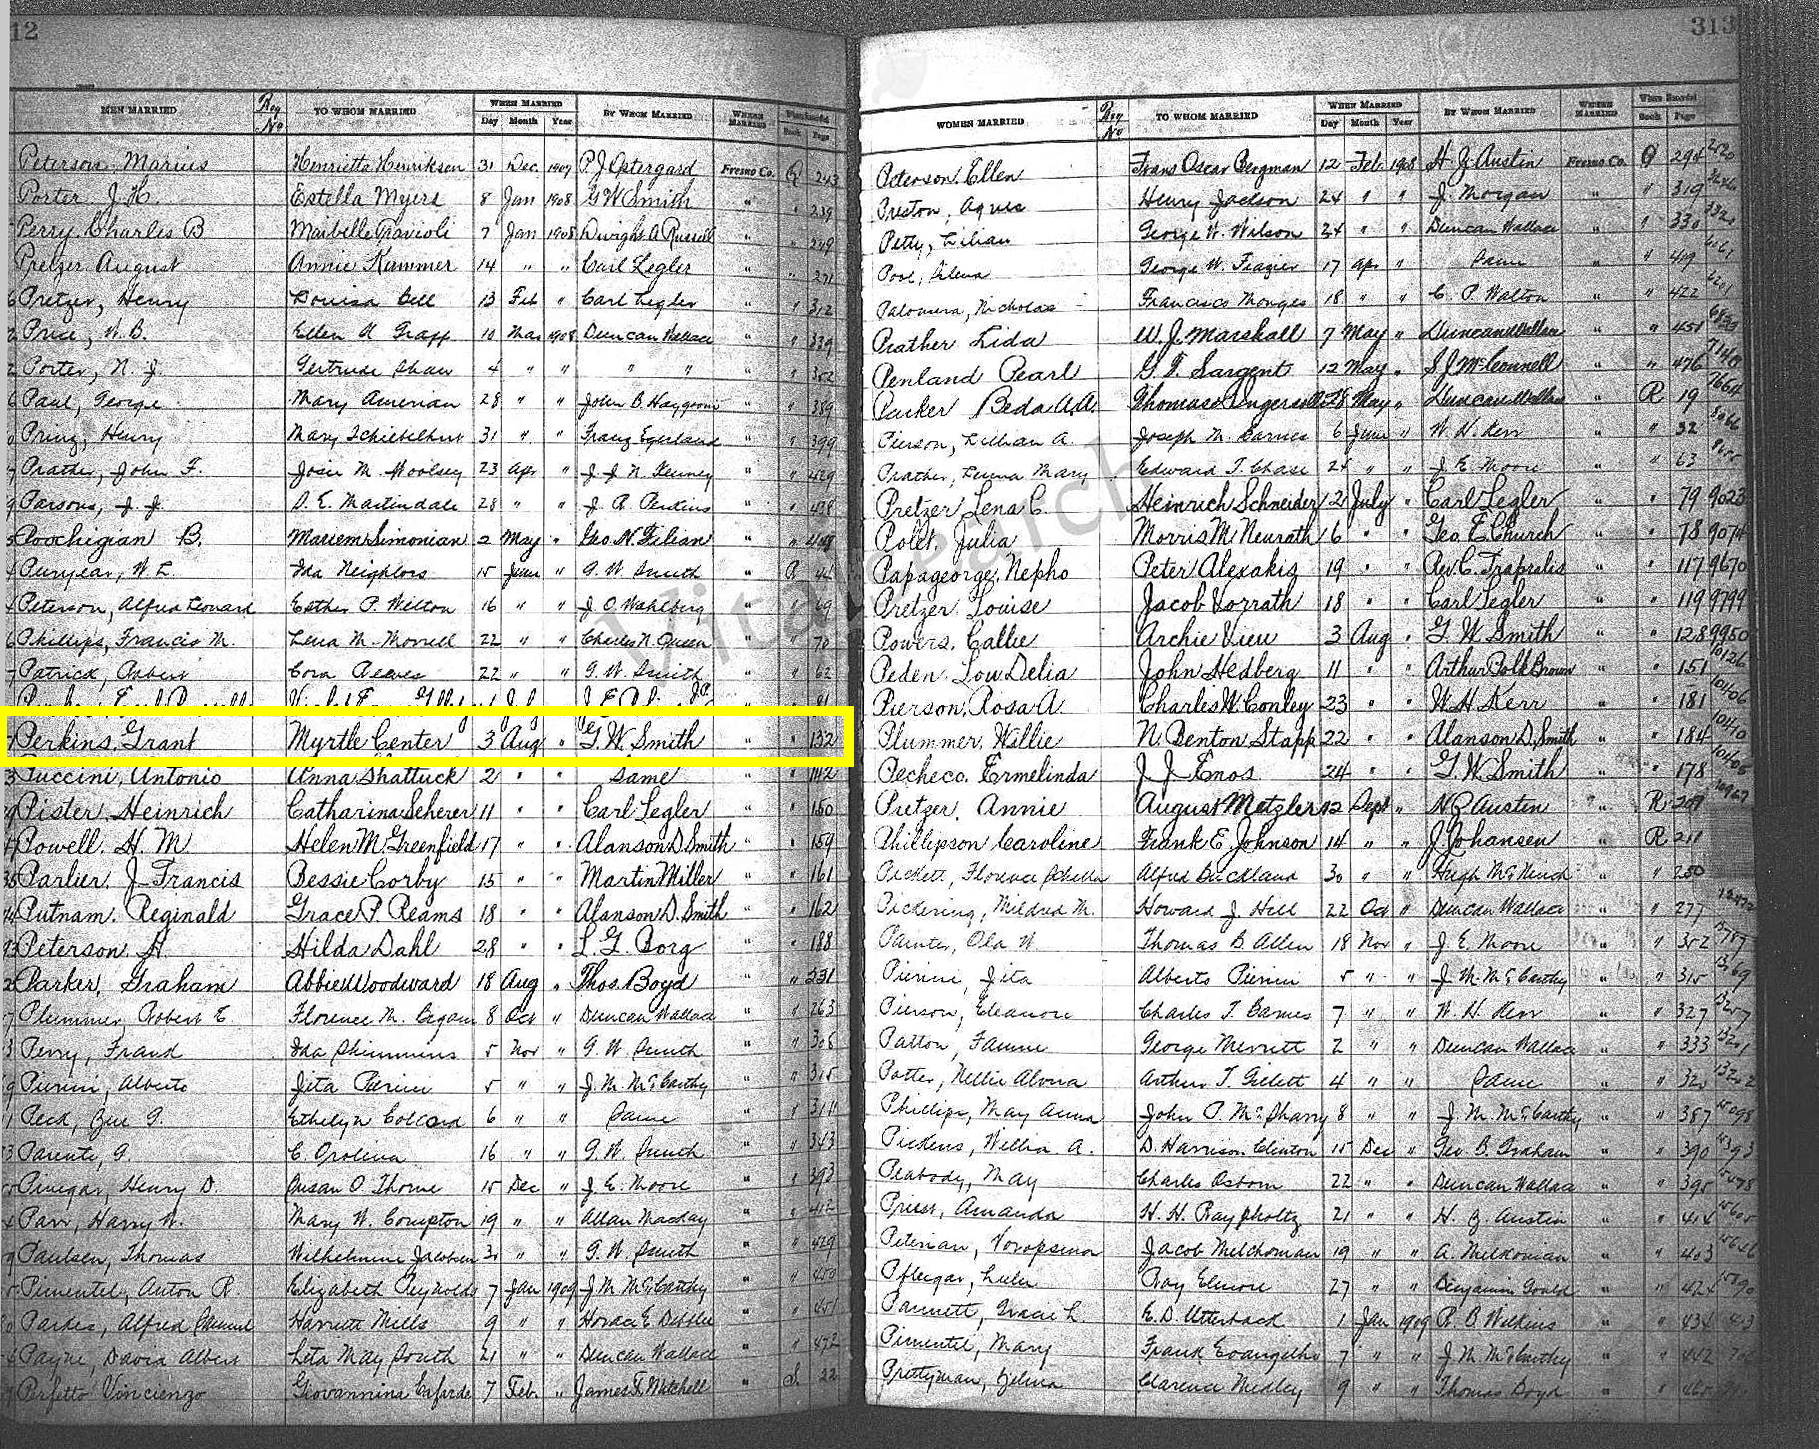 12
MEN MARRIED Reg No TO WHOM MARRIED WHEN MARRIED Day Month Year BY WHOM MARRIED WHERE MARRIED Where Recorded Book Page
Peterson, Marius Henrietta Henriksen 31 Dec. 1907 P. J. Ostergard Fresno Co. Q 243
Porter, J. H. Estella Myers 8 Jan 1908 G W Smith " " 239
Perry, Charles B Maibelle 7 Jan 1908 Dwight A Russell " "
Pretzer August Annie Kammer 14 " " Carl Legler " " 271
Pretzer, Henry Louisa Bell 13 Feb " Carl Legler " " 312
Price, W. B. Ellen A 10 Mar 1908 Duncan Wallace " " 339
Porter, N. J. Gertrude Shaw 4 " " " " " " 352
Paul, George Mary Amerian 28 " " John B " " 389
Prinz, Henry Mary 31 " " Franz " " 399
Prather, John F. Josie M. Woolsey 23 Apr " J. J. N. Kenney " " 429
Parsons, J. J. D. E. Martindale 28 " " J. R. Perkins " " 438
Poochigian B. Mariem Simonian 2 May " Geo. N. Filian " "
Puryear, W. L. Ida Neighbors 15 June " G. W. Smith " R 44
Peterson, Alfred Leonard Esther P. Welton 16 " " J. O. Wahlberg " " 69
Phillips, Francis M. Lena M. Morrell 22 " " Charles N. Queen " " 70
Patrick, Robert Cora Reeves 22 " " G. W. Smith " " 62
Perkins, Grant Myrtle Center 3 Aug " G. W. Smith " " 132
Puccini, Antonio Anna Shattuck 2 " " Same " " 142
Pister Heinrich Catharina Scherer 11 " " Carl Legler " " 150
Powell. H. M Helen M Greenfield 17 " " Alanson D. Smith " " 159
Parlier, J Francis Bessie Corby 15 " " Martin Miller " " 161
Putnam. Reginald Grace P. Reams 18 " " Alanson D. Smith " " 162
Peterson, A. Hilda Dahl 28 " " L. G. Borg " " 188
Parker, Graham Abbie Woodward 18 Aug " Thos. Boyd " " 231
Plummer, Robert E. Florence M. 8 Oct " Duncan Wallace " " 263
Perry, Frank Ida Skimmins 5 Nov " G. W. Smith " " 308
Pierini, Alberto Jita Pierini 5 " " J. M. McCarthy " " 315
Peck, G. Ethelyn 6 " " Same " " 311
Parente, G. C. Orolina 16 " " G. W. Smith " " 343
Pinegar, Henry D. Susan O Thorne 15 Dec " J. E. Moore " " 393
Parr, Harry W. Mary W. Compton 19 " " Allan Mackay " " 412
Paulsen, Thomas Wilhelmine Jacobsen 30 " " G. W. Smith " " 429
Pimentel, Anton R Elizabeth Reynolds 7 Jan 1909 J. M. McCarthy " " 450
Parkes, Alfred Harriett Mills 9 " " Horace E Dibble " " 451
Payne, David Albert Leta May South 21 " " Duncan Wallace " " 472
Perfetto Vincienzo Giovannina 7 Feb. " James T. Mitchell S 22
313
WOMEN MARRIED Reg No TO WHOM MARRIED WHEN MARRIED Day Month Year BY WHOM MARRIED WHERE MARRIED Where Recorded Book Page
Peterson, Ellen Frans Oscar Bergman 12 Feb. 1908 H J Austin Fresno Co. Q 294
Preston, Agnes Henry Jackson 24 " " J. Morgan " " 319
Petty, Lilian George W. Wilson 24 " " Duncan Wallace " " 330
Pool, George W. Frazier 17 Apr " Same " " 419
Palomera, Nicholasa Francisco Monges 18 " " C. P. Walton " " 422
Prather Lida W. J. Marshall 7 May " Duncan Wallace " " 451
Penland Pearl G. T. Sargent 12 May " S J McConnell " " 476
Parker Beda A. A. Thomas Ingersoll 28 May " Duncan Wallace " R 19
Pierson, Lillian A. Joseph M. Barnes 6 June " W. H. Kerr " " 32
Prather, Emma Mary Edward T. Chase 24 " " J. E. Moore " " 63
Pretzer Lena C. Heinrich Schneider 2 July " Carl Legler " " 79 9023
Polet, Julia Morris M Neurath 6 " " Geo. E. Church " " 78 9074
Papageorge. Nepho Peter Alexakis 19 " " Rev C. " " 117 9670
Pretzer Louise Jacob Vorrath 18 " " Carl Legler " " 119 9799
Powers. Callie Archie View 3 Aug " G. W. Smith " " 128 9950
Peden Low Delia John Hedberg 11 " " Arthur Polk Brown " " 151 10126
Pierson, Rosa A. Charles W. Conley 23 " " W. H Kerr " " 181 10406
Plummer Willie N. Benton Stapp 22 " " Alanson D. Smith " " 184
Pacheco. Ermelinda J. J. Enos 24 " " G. W Smith " " 178
Pretzer, Annie August Metzler 12 Sept " H J Austin " R
Phillipson Caroline Frank E Johnson 14 " " J. Johansen " R 211
Pickett, Florence Alfred Buckland 30 " " Hugh " " 250
Pickering, Mildred M. Howard J. Hill 22 Oct " Duncan Wallace " " 277
Painter, Ola W. Thomas B. Allen 18 Nov " J. E. Moore " " 302
Pierini, Jita Alberto Pierini 5 " " J. M. McCarthy " " 315
Pierson, Eleanore Charles T. Barnes 7 " " W. H. Kerr " " 327
Patton, Fannie George Merritt 2 " " Duncan Wallace " " 333
Potter, Nellie Alvina Arthur T. Gillett 4 " " Same " "
Phillips, May Anna John P. McSharry 8 " " J. M. McCarthy " " 387
Pickens, Willia A. D. Harrison Clinton 15 Dec " Geo B. Graham " " 390
Peabody, May Charles Osborn 22 " " Duncan Wallace " " 395
Priest, Amanda H. H. 21 " " H. J. Austin " " 414
Peterian, Jacob Melchonian 19 " " A. Melkonian " " 403
Pflegar, Lulu Roy Elmore 27 " " Benjamin Gould " " 424
Pannett, Grace L. E. D. Utterback 1 Jan 1909 R. B Wilkins " " 434
Pimentel, Mary Frank Evangelho 7 " " J. M. McCarthy " " 442
Prettyman, Zelma Clarence Medley 9 " " Thomas Boyd " "
VitalSearch